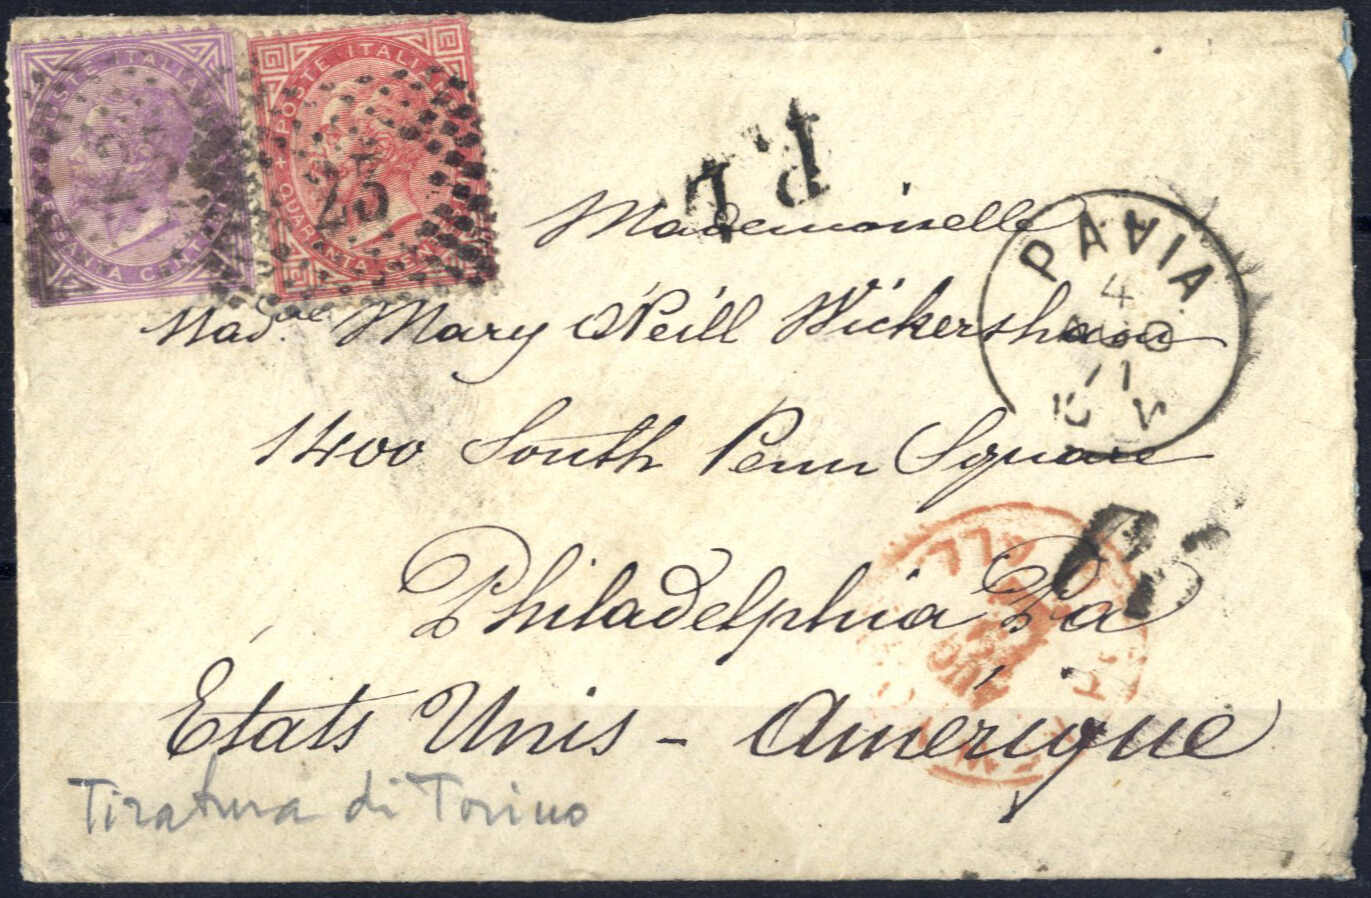 POSTE ITALIANE
SESSANTA CENTESIMI
POSTE ITALIANE
QUARANTA CENTESIMI
23
23
P.D.
PAVIA
4
71
Mademoiselle
Mad.lle Mary O'Neill Wickersham
1400 South Penn Square
Philadelphia Pa
États Unis - Amérique
Tiratura di Torino